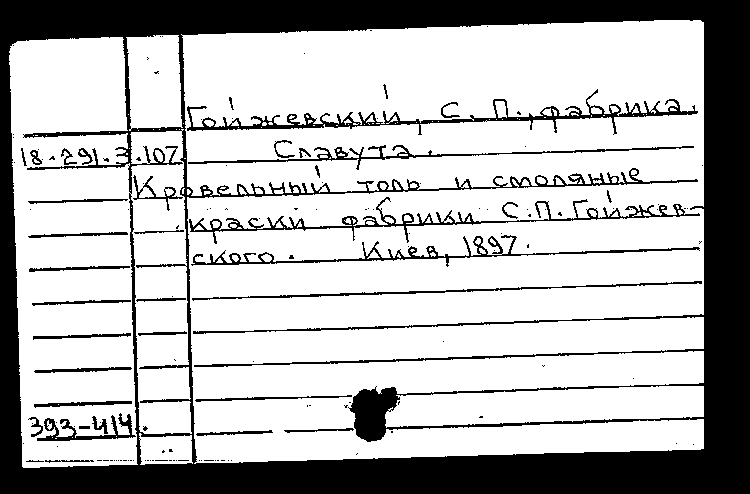 Гойжевский, С. П., фабрика.
18.291.3.107. Славута.
Кровельный толь и смоляные
краски фабрики С.П. Гойжев-
ского. Киев, 1897.
393-414.